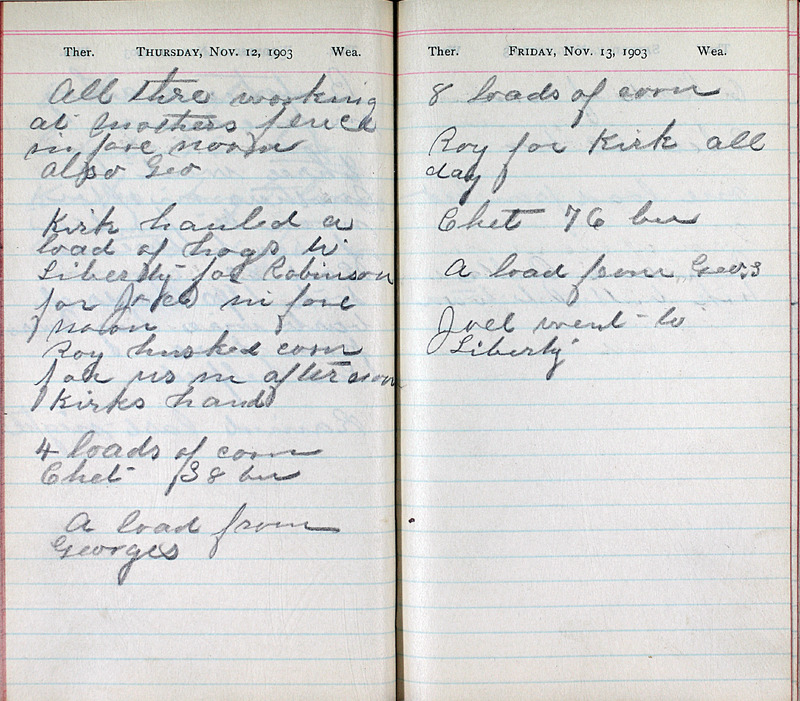 Ther. THURSDAY, NOV. 12, 1903 Wea.
All thre working
at Mothers fence
in fore noon
also Geo
Kirk hauled a
load of hogs to
Liberty for Robinson
for Joel in fore
noon
Roy husked corn
for us in after noon
Kirks hand
4 loads of corn
Chet 38 bu
A load from
Georges
Ther. FRIDAY, NOV. 13, 1903 Wea.
8 loads of corn
Roy for Kirk all
day
Chet 76 bu
A load from Geo.s
Joel went to
Liberty